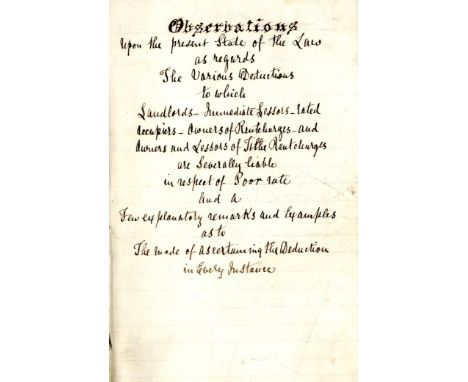 Observations
Upon the present State of the Law
as regards
The Various Deductions
to which
Landlords - Immediate Lessors - rated
occupiers - Owners of Rentcharges - and
Owners and Lessors of Tithe Rentcharges
are Severally liable
in respect of Poor rate
And a
Few explanatory remarks and Examples
as to
The mode of ascertaining the Deduction
in Every Instance